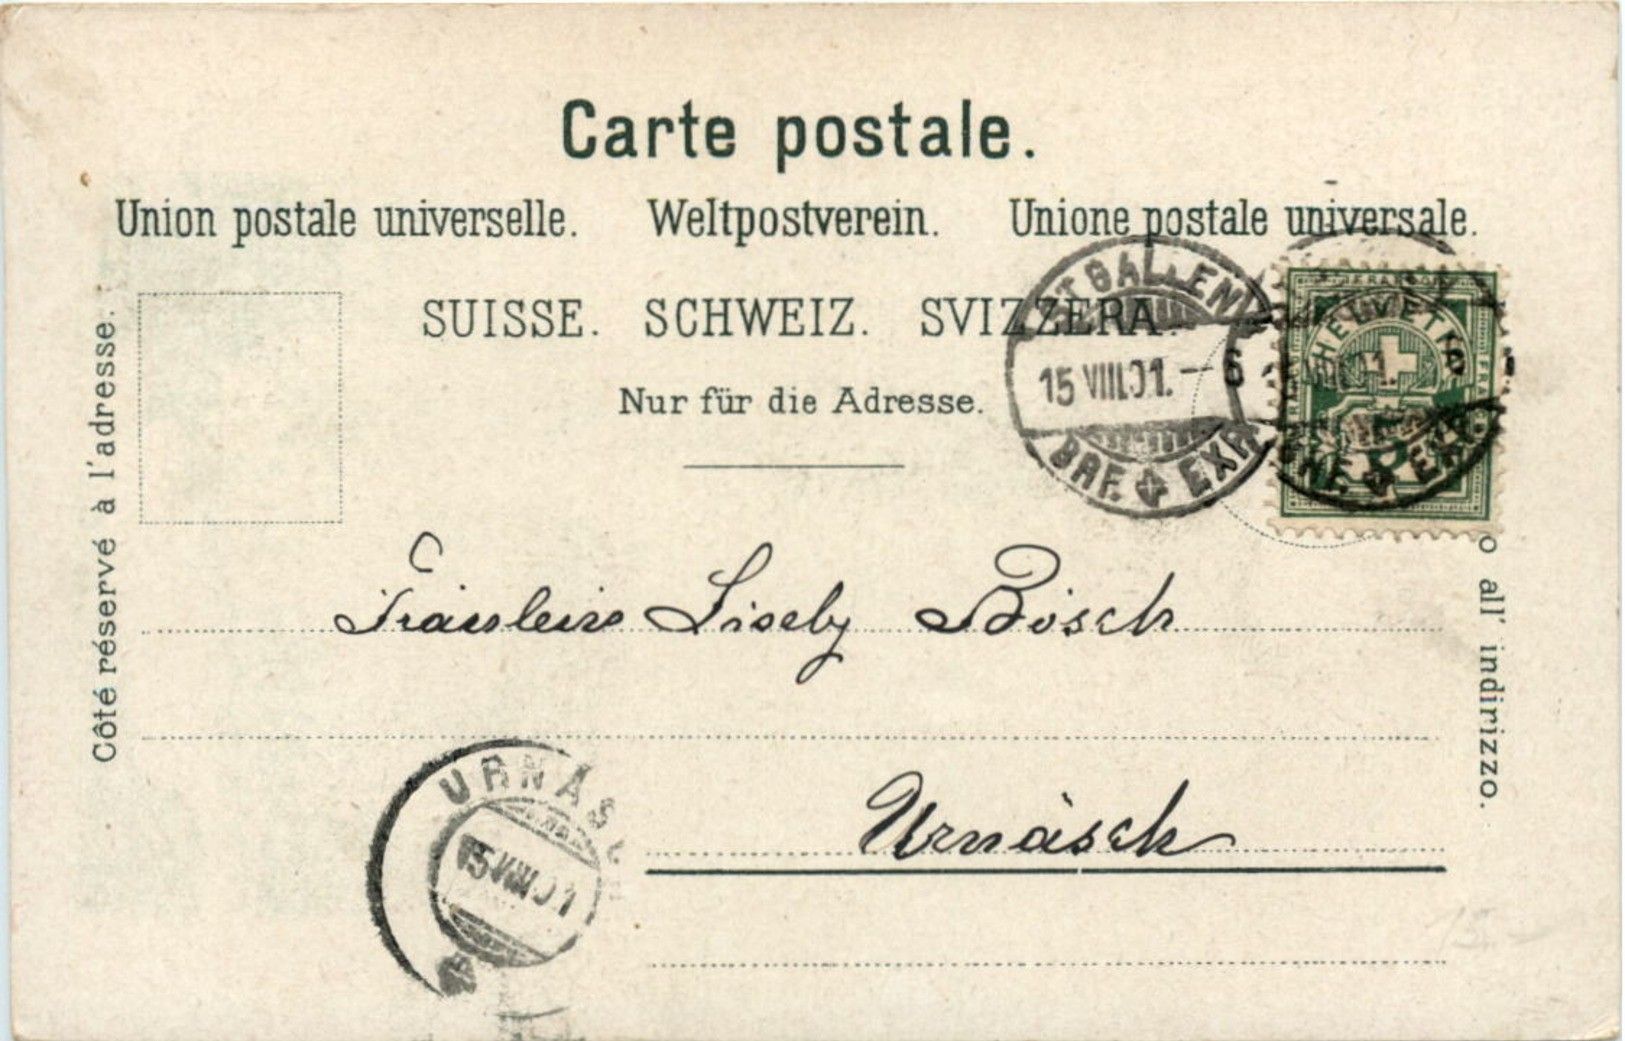 Carte postale.
Union postale universelle. Weltpostverein. Unione postale universale.
SUISSE. SCHWEIZ. SVIZZERA.
Nur für die Adresse.
Côté réservé à l'adresse.
o all' indirizzo.
ST. GALLEN
15 VIII.01.–6
BRF. EXP.
HELVETIA
Fräulein Liseby Bösch
Urnäsch
URNÄSCH
15 VIII 01
15.–